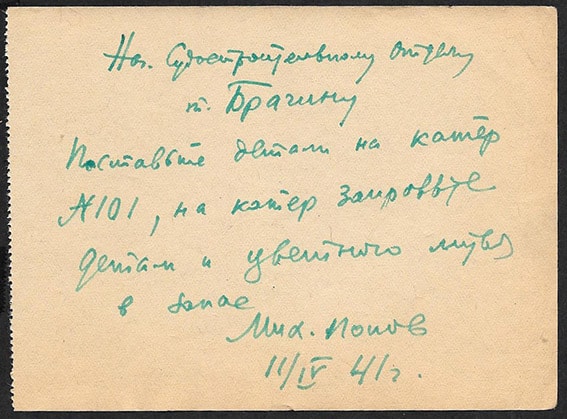 Нач. Судостроительному отделу
т. Брагину
Поставьте детали на катер
№101, на катер
детали и цветного литья
в запас
Мих. Попов
11/IV 41г.